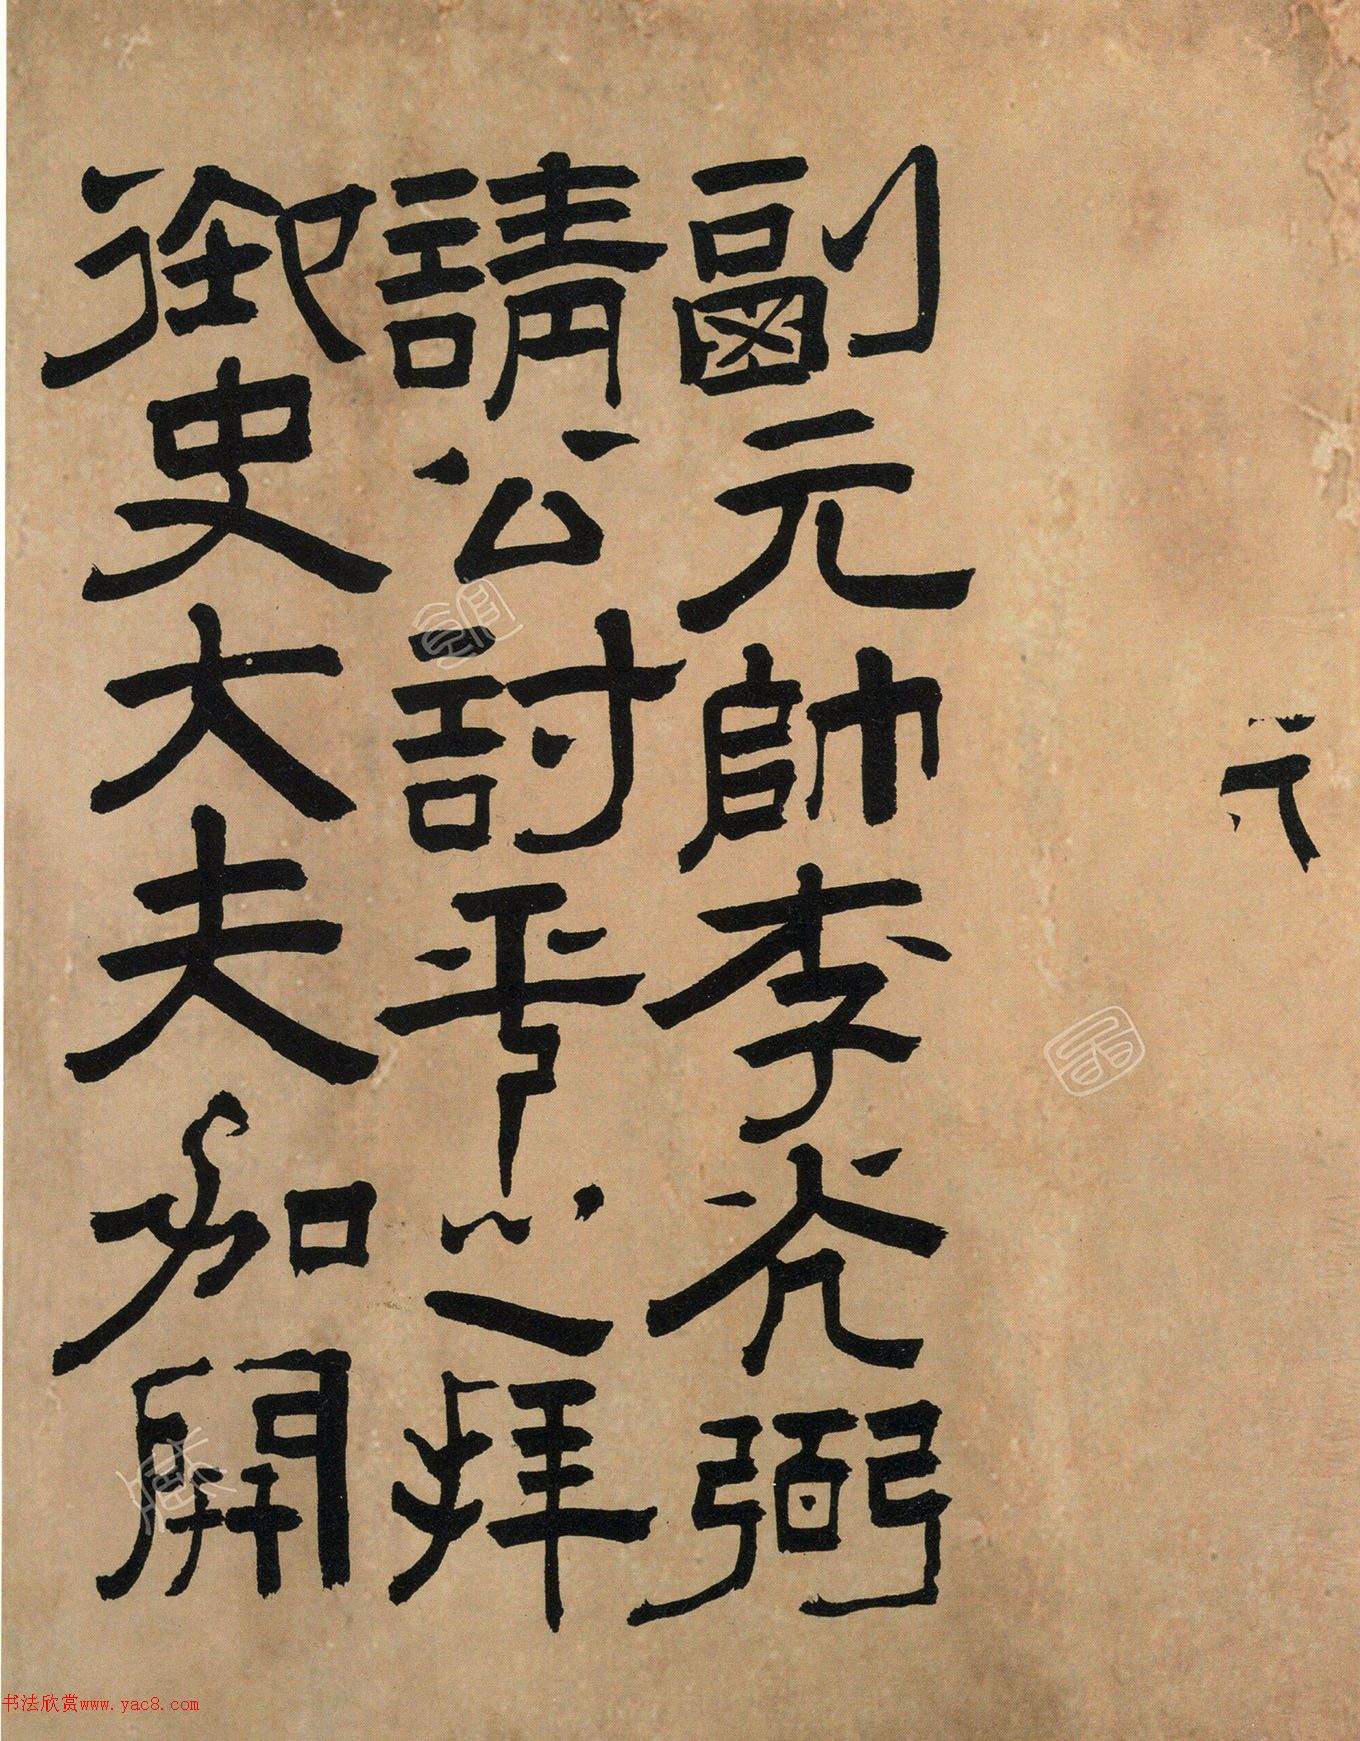 元
副元帥李光弼
請公討平之拜
御史大夫加開
书法欣赏www.yac8.com